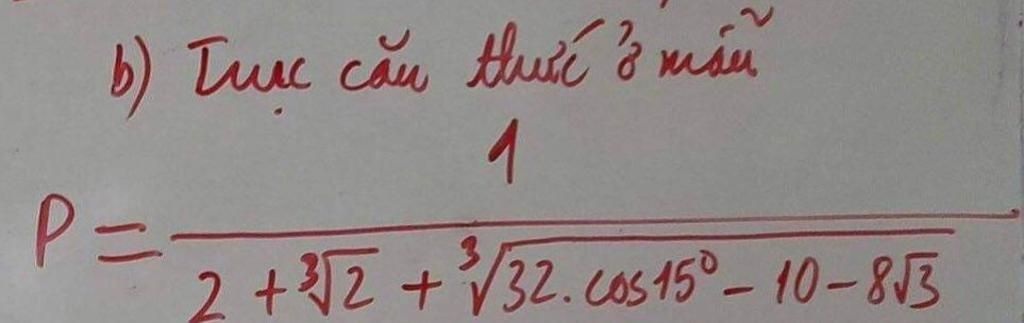 b) Trục căn thức ở mẫu
P = 1 / (2 + ∛2 + ∛(32.cos15° - 10 - 8√3))